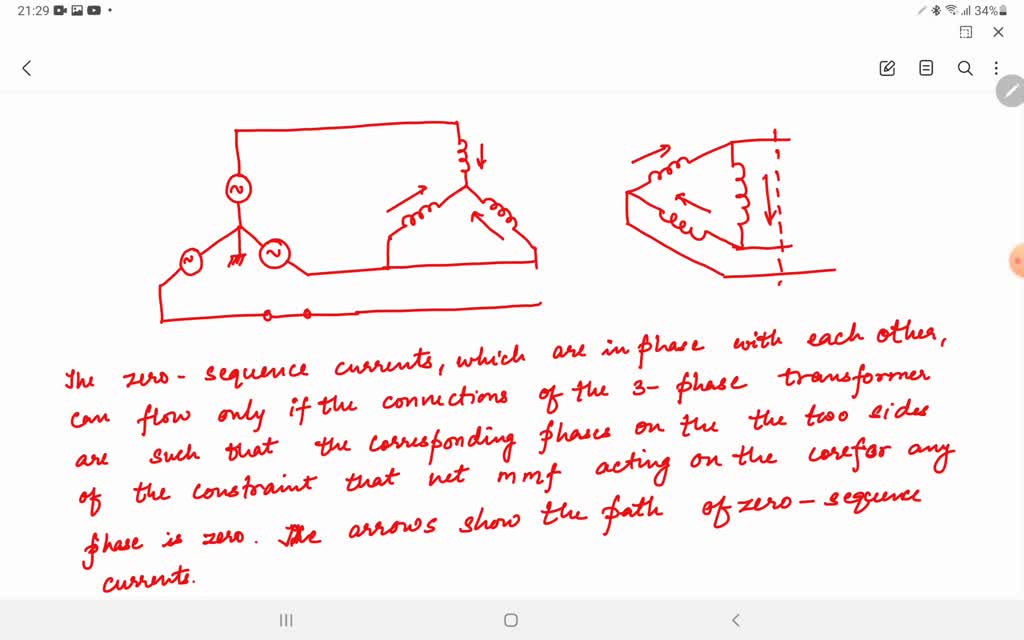 21:29
34%
The zero-sequence currents, which are in phase with each other,
can flow only if the connections of the 3-phase transformer
are such that the corresponding phases on the the two sides
of the constraint that net mmf acting on the core for any
phase is zero. The arrows show the path of zero-sequence
currents.